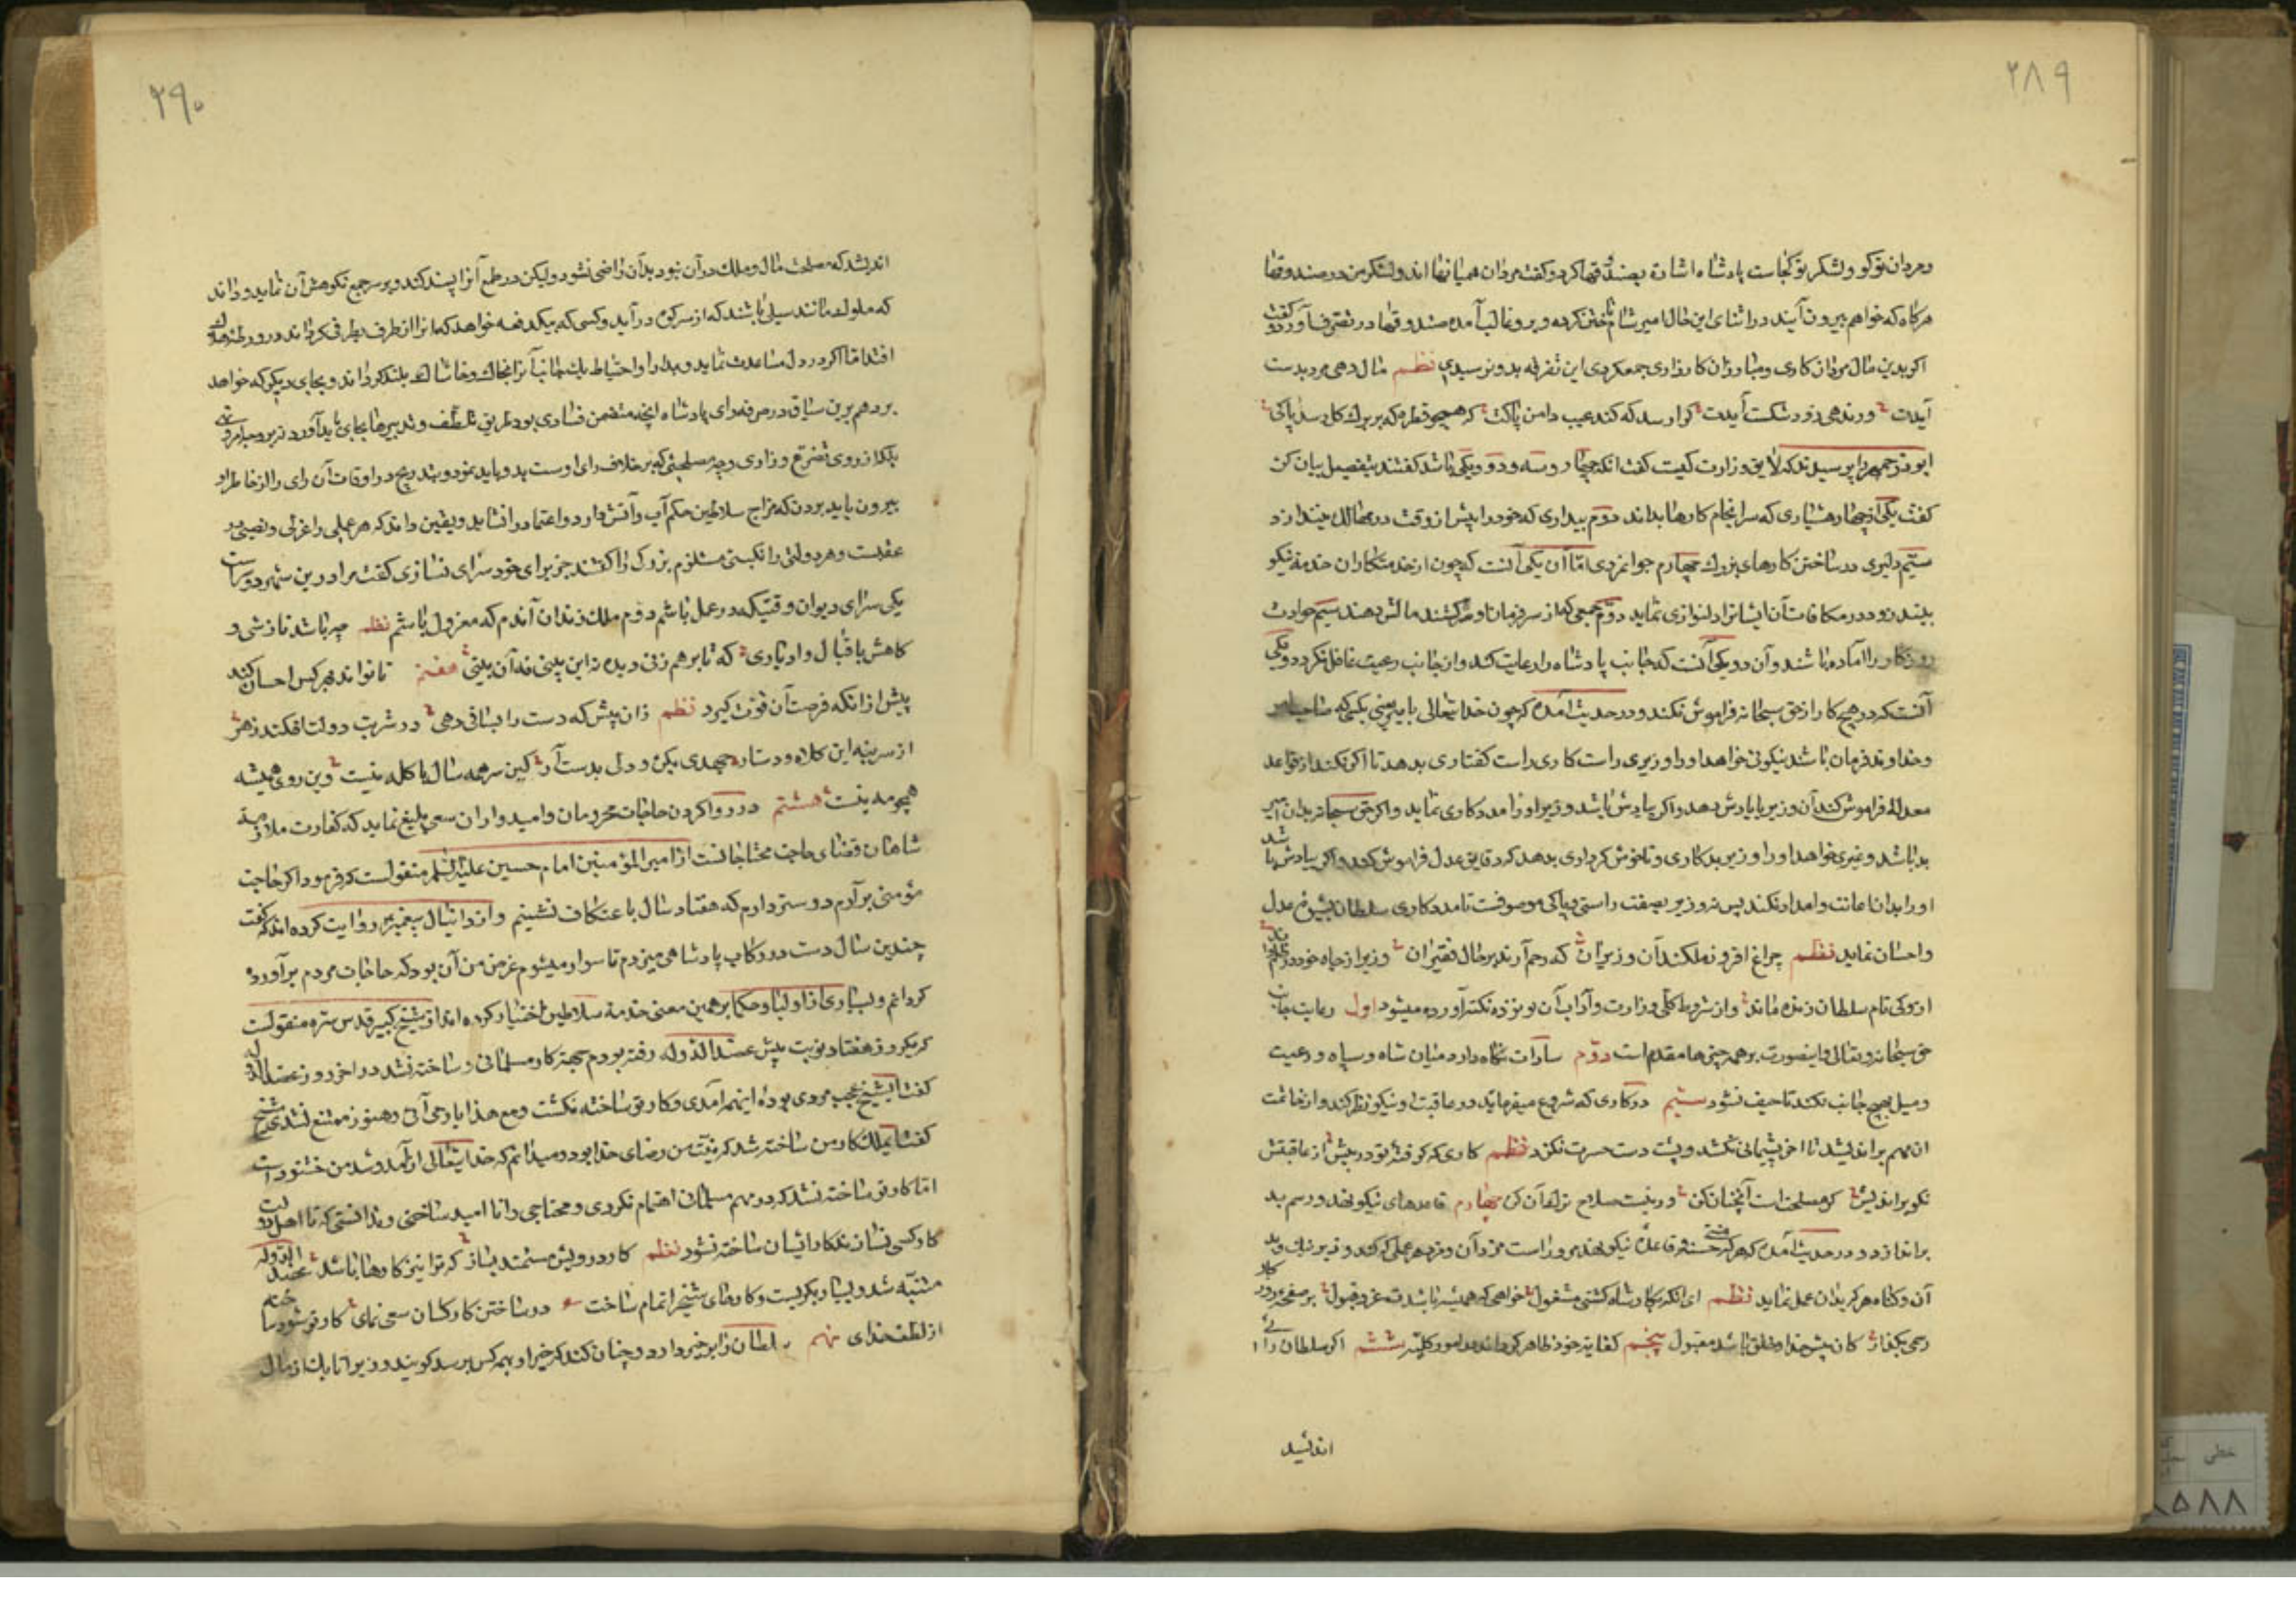 ۲۸۹
و مردان تو کو و لشکر تو کجاست پادشاه اشارة بصندقها کرد و کفت مردان همیانها اند و لشکر من در صندوقها
هرکاه که خواهم بیرون آیند در اثنای این حال امیر شام تاختن کرده و برو غالب آمده صندوقها در تصرف آورد و کفت
اکر بدین مال مردان کاری و مبارزان کارزاری جمع کردی این تفرقه بدو نرسیدی نظم مال دهی مرد بدست
آیدت ور ندهی زود شکست آیدت کرا رسد که کند عیب دامن پاکت که همچو قطره که بر برك کل رسد پاکی
ابوذرجمهر را پرسیدند که لایق وزارت کیست کفت انکه چهار و سه و دو و یکی باشد کفتند بتفصیل بیان کن
کفت یکی از چهار هشیاری که سرانجام کارها بداند دوم بیداری که خود را پیش از وقت در مهالك نیندازد
سیم دلیری در ساختن کارهای بزرك چهارم جوانمردی امّا آن یکی آنست که چون از خدمتکاران خدمة نیکو
بیند زود در مکافات آن ایشانرا دلنوازی نماید دوّم جمعی که از سر فرمان او کشند مالش دهند سیم حوادث
روزکار را آماده باشند و آن دو یکی آنست که جانب پادشاه را رعایت کند و از جانب رعیت غافل نکردد و یکی
آنست که در هیچ کار از حق سبحانه فراموش نکند و در حدیث آمده که چون خدا یتعالی با یکی که صاحب امر
و خداوند فرمان باشد نیکوئی خواهد او را وزیری راست کاری راست کفتاری بدهد تا اکر نکند از قواعد
معدله فراموش کند آن وزیر با یادش دهد و اکر بیادش باشد وزیر او را مددکاری نماید و اکر حق سبحانه بدان امیر
بد باشد و غیری خواهد او را وزیر بدکاری و ناخوش کرداری بدهد که دقایق عدل فراموش کند و اکر بیادش باشد
او را بدان اعانت و امداد نکند پس هر وزیر بصفت راستی و پاکی موصوفست تا مددکاری سلطان عدل
و احسان نماید نظم چراغ افروز ملکند آن وزیران که رحم آرند بر حال فقیران وزیر از جاه خود
از وکی نام سلطان زنده ماند و از شروط کلّی وزارت و آداب آن نوزده نکته آورده میشود اول رعایت جانب
حق سبحانه و تعالی که اینصورت بر همه چیزها مقدم است دوّم ساوات نکاه دارد میان شاه و سپاه و رعیت
و میل بهیچ جانب نکند تا حیف نشود سیّم در کاری که شروع میفرماید در عاقبت او نیکو نظر کند و از خاتمت
ان مهم براندیشد تا اخر پشیمانی نکشد و پشت دست حسرت نکزد نظم کاری که کرفته تو در پیش از عاقبتش
نکو براندیش کر مصلحت است آنچنان کن ور نیست صلاح ترك آن کن چهارم قاعدهای نیکو نهد و رسم بد
براندازد و در حدیث آمده که هرکه سنة حسنه و قاعدهٔ نیکو نهد بر وی است مزد آن و مزد هر عملی که کند و زیر نیك و بد
آن و کناه هرکه بدان عمل نماید نظم ای انکه بکار شاه کشتی مشغول خواهی که همیشه باشدت عزّ و قبول بر صفحهٔ روزکار
رسمی بکذار کان پیش خدا و خلق باشد مقبول پنجم کفایة خود ظاهر کرداند در امور کلیّه ششم اکر سلطان را
اندیشد
۲۹۰
اندیشد که مصلحت مال و ملك در آن نبود بدان راضی نشود ولیکن در طمع آنرا پسند کند و بر سر جمع نکوهش آن نماید و داند
که ملوك مانند سیلی باشند که از سر کوه در آید و کسی که بیکدفعه خواهد که مانرا از طرف بطرفی کرداند در ورطهٔ هلاك
افتد امّا اکر در دل مساعدت نماید و بمدارا و احتیاط یك جانب آنرا بخاك و خاشاك بلند کرداند و بجای دیکر که خواهد
برد هم برین سیاق در صرفه رای پادشاه انچه متضمن فسادی بود طریق تلطّف و تدبیرها بجای باید آورد نه بر وجه امر و نهی
بلکه از روی تضرّع و زاری وجه مصلحتی که بر خلاف رای اوست بدو باید نمود و بتدریج در اوقات آن رای را از خاطر او
بیرون باید بردن که مزاج سلاطین حکم آب و آتش دارد و اعتماد را نشاید و یقین داند که هر عملی را عزلی و نصیبی در
عقبست و هر دولتی را نکبتی مستلزم بزرکی را کفتند چرا برای خود سرای نسازی کفت مرا درین شهر دو سراست
یکی سرای دیوان وقتیکه در عمل باشم دوّم ملك زندان آندم که معزول باشم نظم چه باشد نازشی و
کاهش باقبال و ادباری که تا بر هم زنی دیده نه این بینی نه آن بینی هفتم تا تواند بهر کس احسان کند
پیش از انکه فرصت آن فوت کیرد نظم زان پیش که دست را بساقی دهی در شربت دولت افکند زهر
از سر بنه این کلاه و دستار جهدی بکن و دلی بدست آر کین سر همه سال با کله نیست وین روی همیشه
همچو مه نیست هشتم در روا کردن حاجات محرومان و امیدواران سعی بلیغ نماید که کفارت ملازمة
شاهان قضای حاجت محتاجانست از امیر المؤمنین امام حسین علیه السّلم منقولست که فرمود اکر حاجت
مؤمنی برآرم دوستر دارم که هفتاد سال باعتکاف نشینم و از دانیال پیغمبر روایت کرده اند که کفت
چندین سال دست در رکاب پادشاهی میزدم تا سوار میشوم غرض من آن بود که حاجات مردم برآورده
کردانم و بسیاری از اولیا و حکما بر همین معنی خدمة سلاطین اختیار کرده اند از شیخ کبیر قدس سره منقولست
که یکروز هفتاد نوبت پیش عضد الدّوله رفته بودم جهة کار مسلمانی و ساخته نشد در اخر روز عضد الدّوله
کفت ای شیخ عجب مردی بودهٔ اینهمه آمدی و کار تو ساخته نکشت و مع هذا باز می آئی و هنوز ممتنع نشدی شیخ
کفت ای ملك کار من ساخته شد که نیّت من رضای خدا بود و میدانم که خدا یتعالی از آمد و شد من خشنود است
امّا کار تو ساخته نشد که در مهم مسلمانی اهتمام نکردی و محتاجی را نا امید ساختی و ندانستی که تا اهل دولت
کار کسی نسازند کار ایشان ساخته نشود نظم کار درویش مستمند بساز که ترا نیز کارها باشد عضد الدّوله
متنبّه شد و بسیار بکریست و کارهای شیخ را تمام ساخت در ساختن کار کسان سعی نمای کار تو شود ساخته
از لطف خدای نهم سلطان را بر خیر دارد و چنان کند که خیر او بهمه کس برسد کویند وزیر اتابك از مال